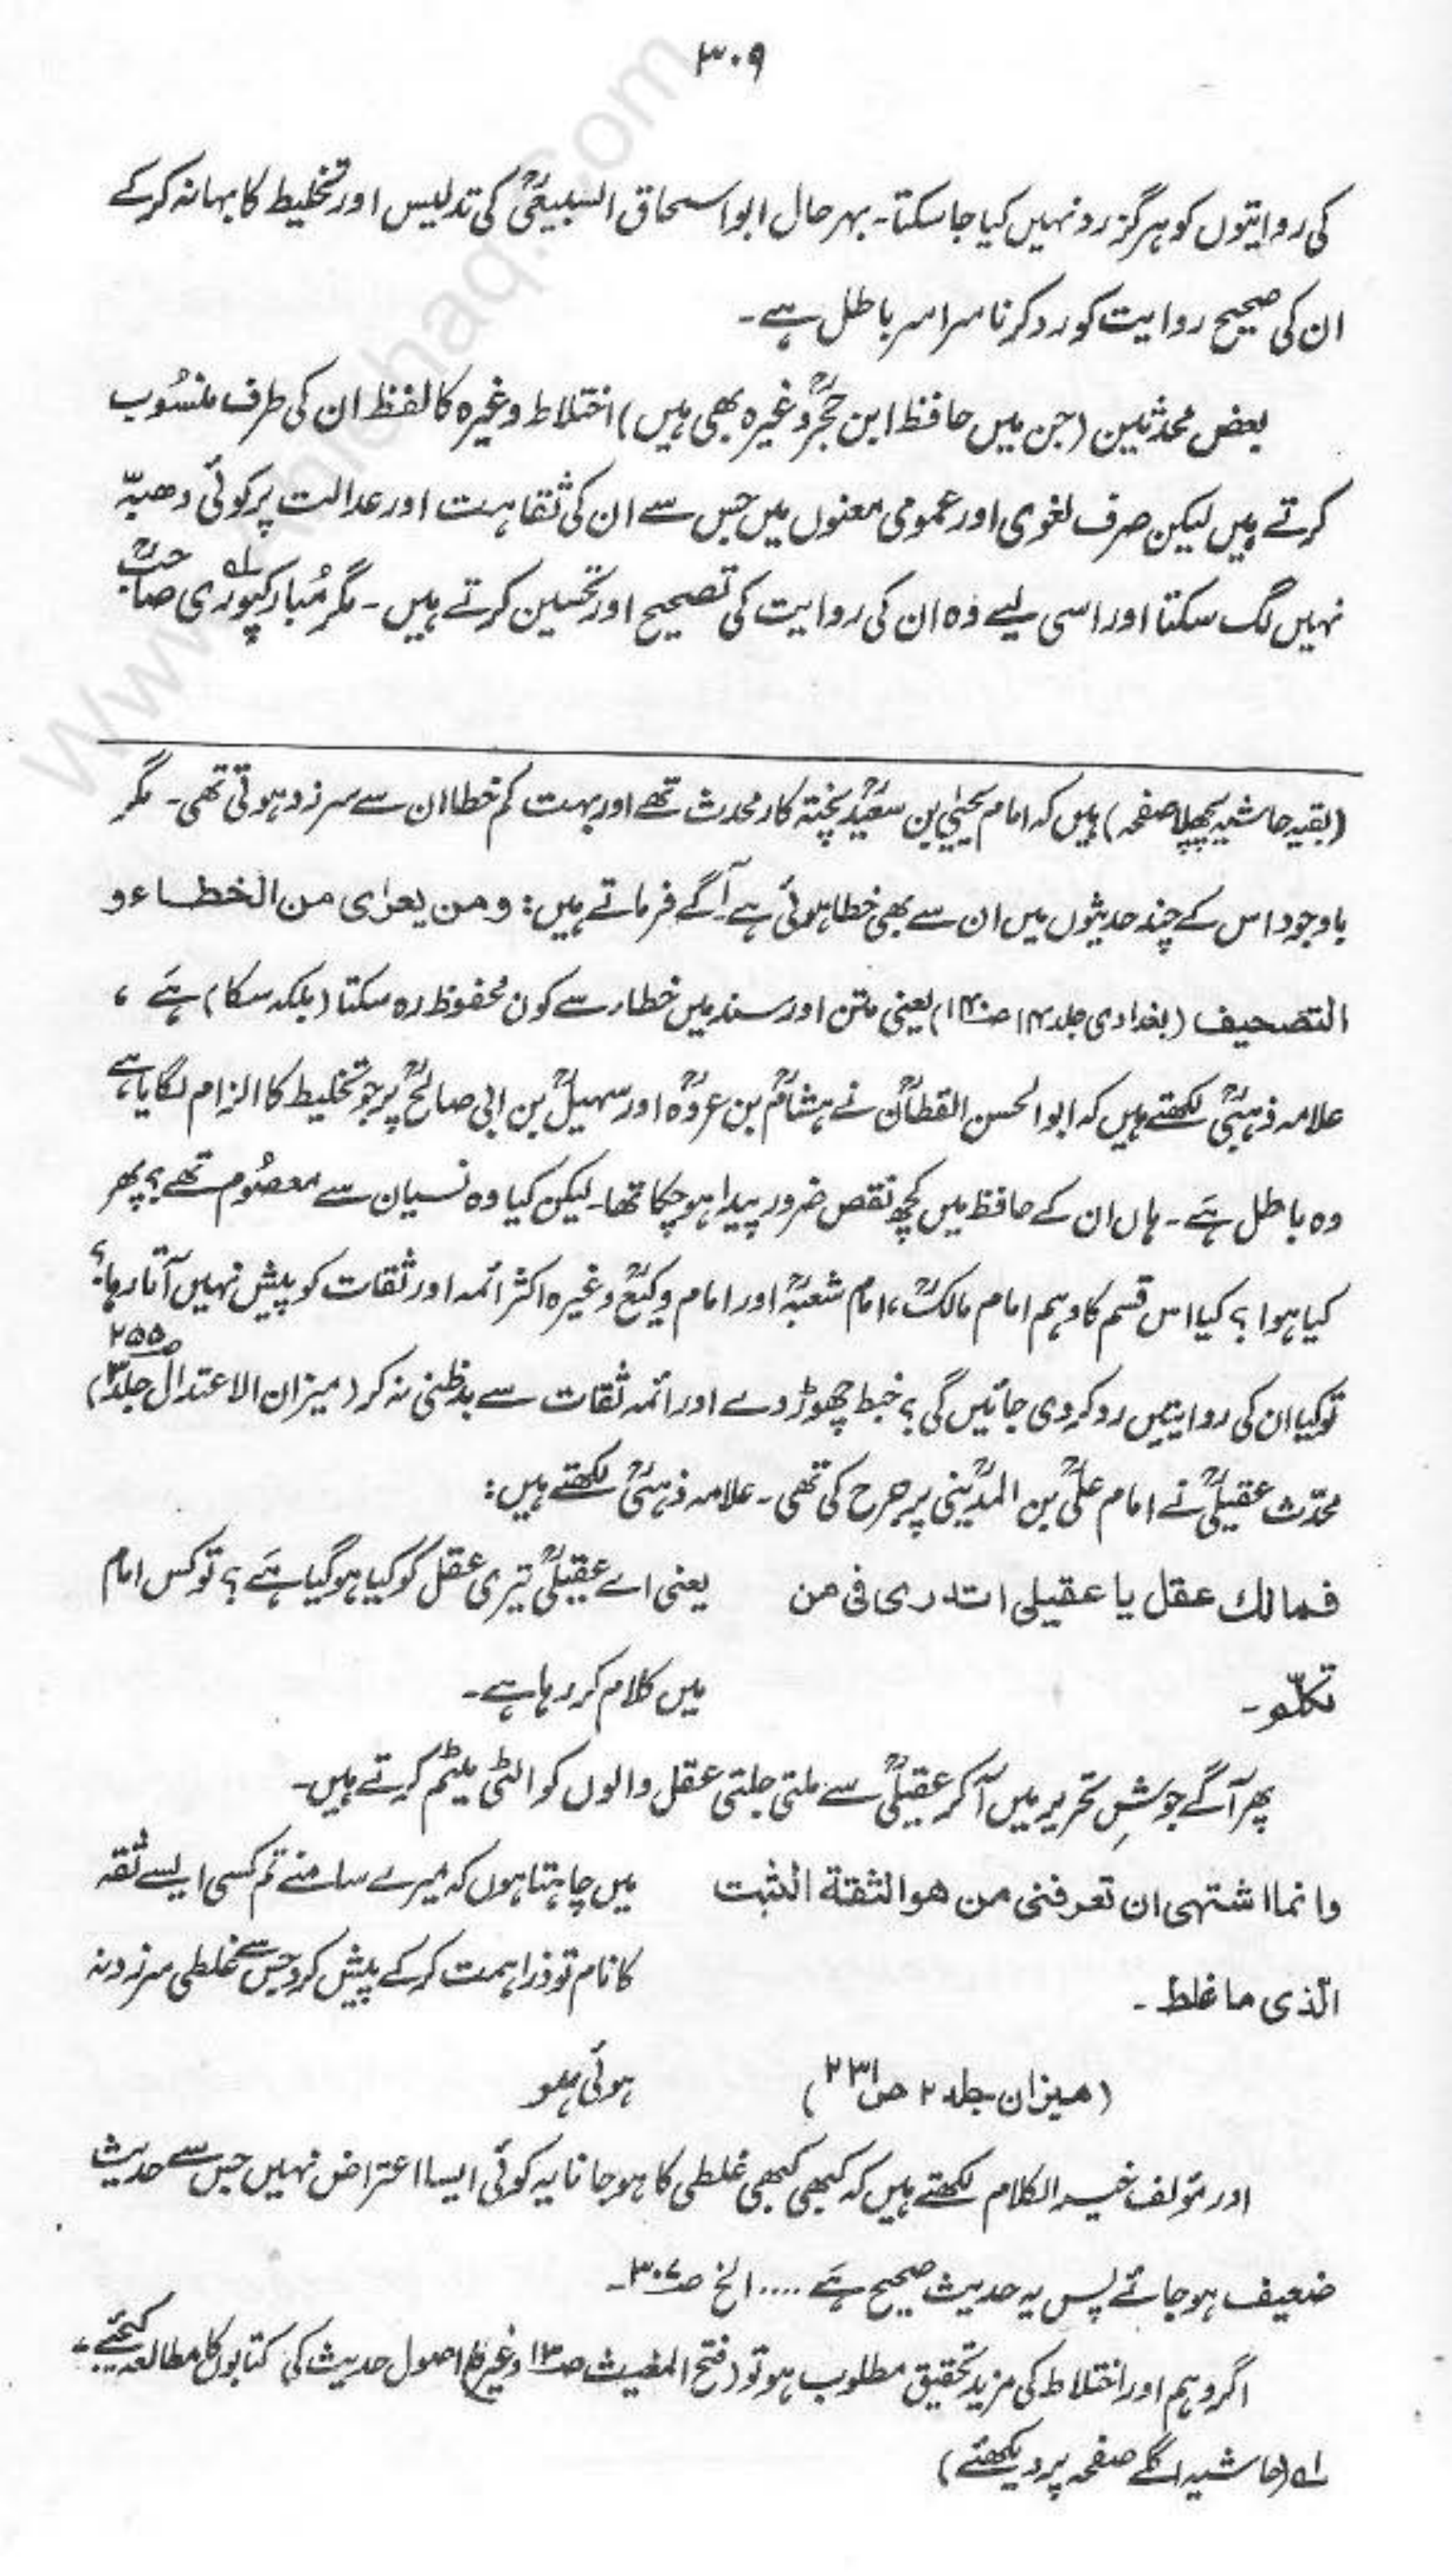 ۳۰۹
کی روایتوں کو ہرگز رد نہیں کیا جا سکتا۔ بہر حال ابو اسحاق السبیعیؒ کی تدلیس اور تخلیط کا بہانہ کر کے
ان کی صحیح روایت کو رد کرنا سراسر باطل ہے۔
بعض محدثین (جن میں حافظ ابن حجرؒ وغیرہ بھی ہیں) اختلاط وغیرہ کا لفظ ان کی طرف منسُوب
کرتے ہیں لیکن صرف لغوی اور عمومی معنوں میں جس سے ان کی ثقاہت اور عدالت پر کوئی دھبّہ
نہیں لگ سکتا اور اسی لیے وُہ ان کی روایت کی تصحیح اور تحسین کرتے ہیں۔ مگر مُبارکپوری ؂۱ صاحبؒ
(بقیہ حاشیہ پچھلا صفحہ) ہیں کہ امام یحییٰؒ بن سعیدؒ پختہ کار محدث تھے اور بہت کم خطا ان سے سرزد ہوتی تھی۔ مگر
باوجود اس کے چند حدیثوں میں ان سے بھی خطا ہوئی ہے آگے فرماتے ہیں: ومن یعرٰی من الخطاء و
التصحیف (بغدادی جلد ۱۴ ص۱۴۰) یعنی متن اور سند میں خطار سے کون محفوظ رہ سکتا (بلکہ سکا) ہَے ،
علامہ ذہبیؒ لکھتے ہیں کہ ابو الحسن القطانؒ نے ہشامؒ بن عروہؒ اور سہیلؒ بن ابی صالحؒ پر جو تخلیط کا الزام لگایا ہے
وہ باطل ہَے۔ ہاں ان کے حافظ میں کچھ نقص ضرور پیدا ہو چکا تھا۔ لیکن کیا وہ نسیان سے معصُوم تھے؟ پھر
کیا ہوا ؟ کیا اس قسم کا وہم امام مالکؒ، امام شعبہؒ اور امام وکیعؒ وغیرہ اکثر ائمہ اور ثقات کو پیش نہیں آتا رہا؟
تو کیا ان کی روایتیں رد کر دی جائیں گی؟ خبط چھوڑ دے اور ائمہ ثقات سے بدظنی نہ کر (میزان الاعتدال جلد ۳ ص۲۵۵)
محدّث عقیلیؒ نے امام علیؒ بن المدینیؒ پر جرح کی تھی۔ علامہ ذہبیؒ لکھتے ہیں:
فمالك عقل یا عقیلی اتدری فی من یعنی اے عقیلیؒ تیری عقل کو کیا ہو گیا ہَے ؟ تو کس امام
تکلّم۔ میں کلام کر رہا ہے۔
پھر آگے جوشِ تحریر میں آ کر عقیلیؒ سے ملتی جلتی عقل والوں کو الٹی میٹم کرتے ہیں۔
وانما اشتہی ان تعرفنی من ھو الثقة الثبت میں چاہتا ہوں کہ میرے سامنے تم کسی ایسے ثقہ
الّذی ما غلط۔ کا نام تو ذرا ہمت کر کے پیش کرو جس سے غلطی سرزد نہ
(میزان جلد ۲ ص۲۳۱) ہوئی ہو
اور مؤلف خیر الکلام لکھتے ہیں کہ کبھی کبھی غلطی کا ہو جانا یہ کوئی ایسا اعتراض نہیں جس سے حدیث
ضعیف ہو جائے پس یہ حدیث صحیح ہَے .... الخ ص۳۰۷۔
اگر وہم اور اختلاط کی مزید تحقیق مطلوب ہو تو (فتح المغیث ص۱۳ وغیرہ) اصول حدیث کی کتابوں کا مطالعہ کیجئے۔
؂۱ (حاشیہ اگلے صفحہ پر دیکھئے)